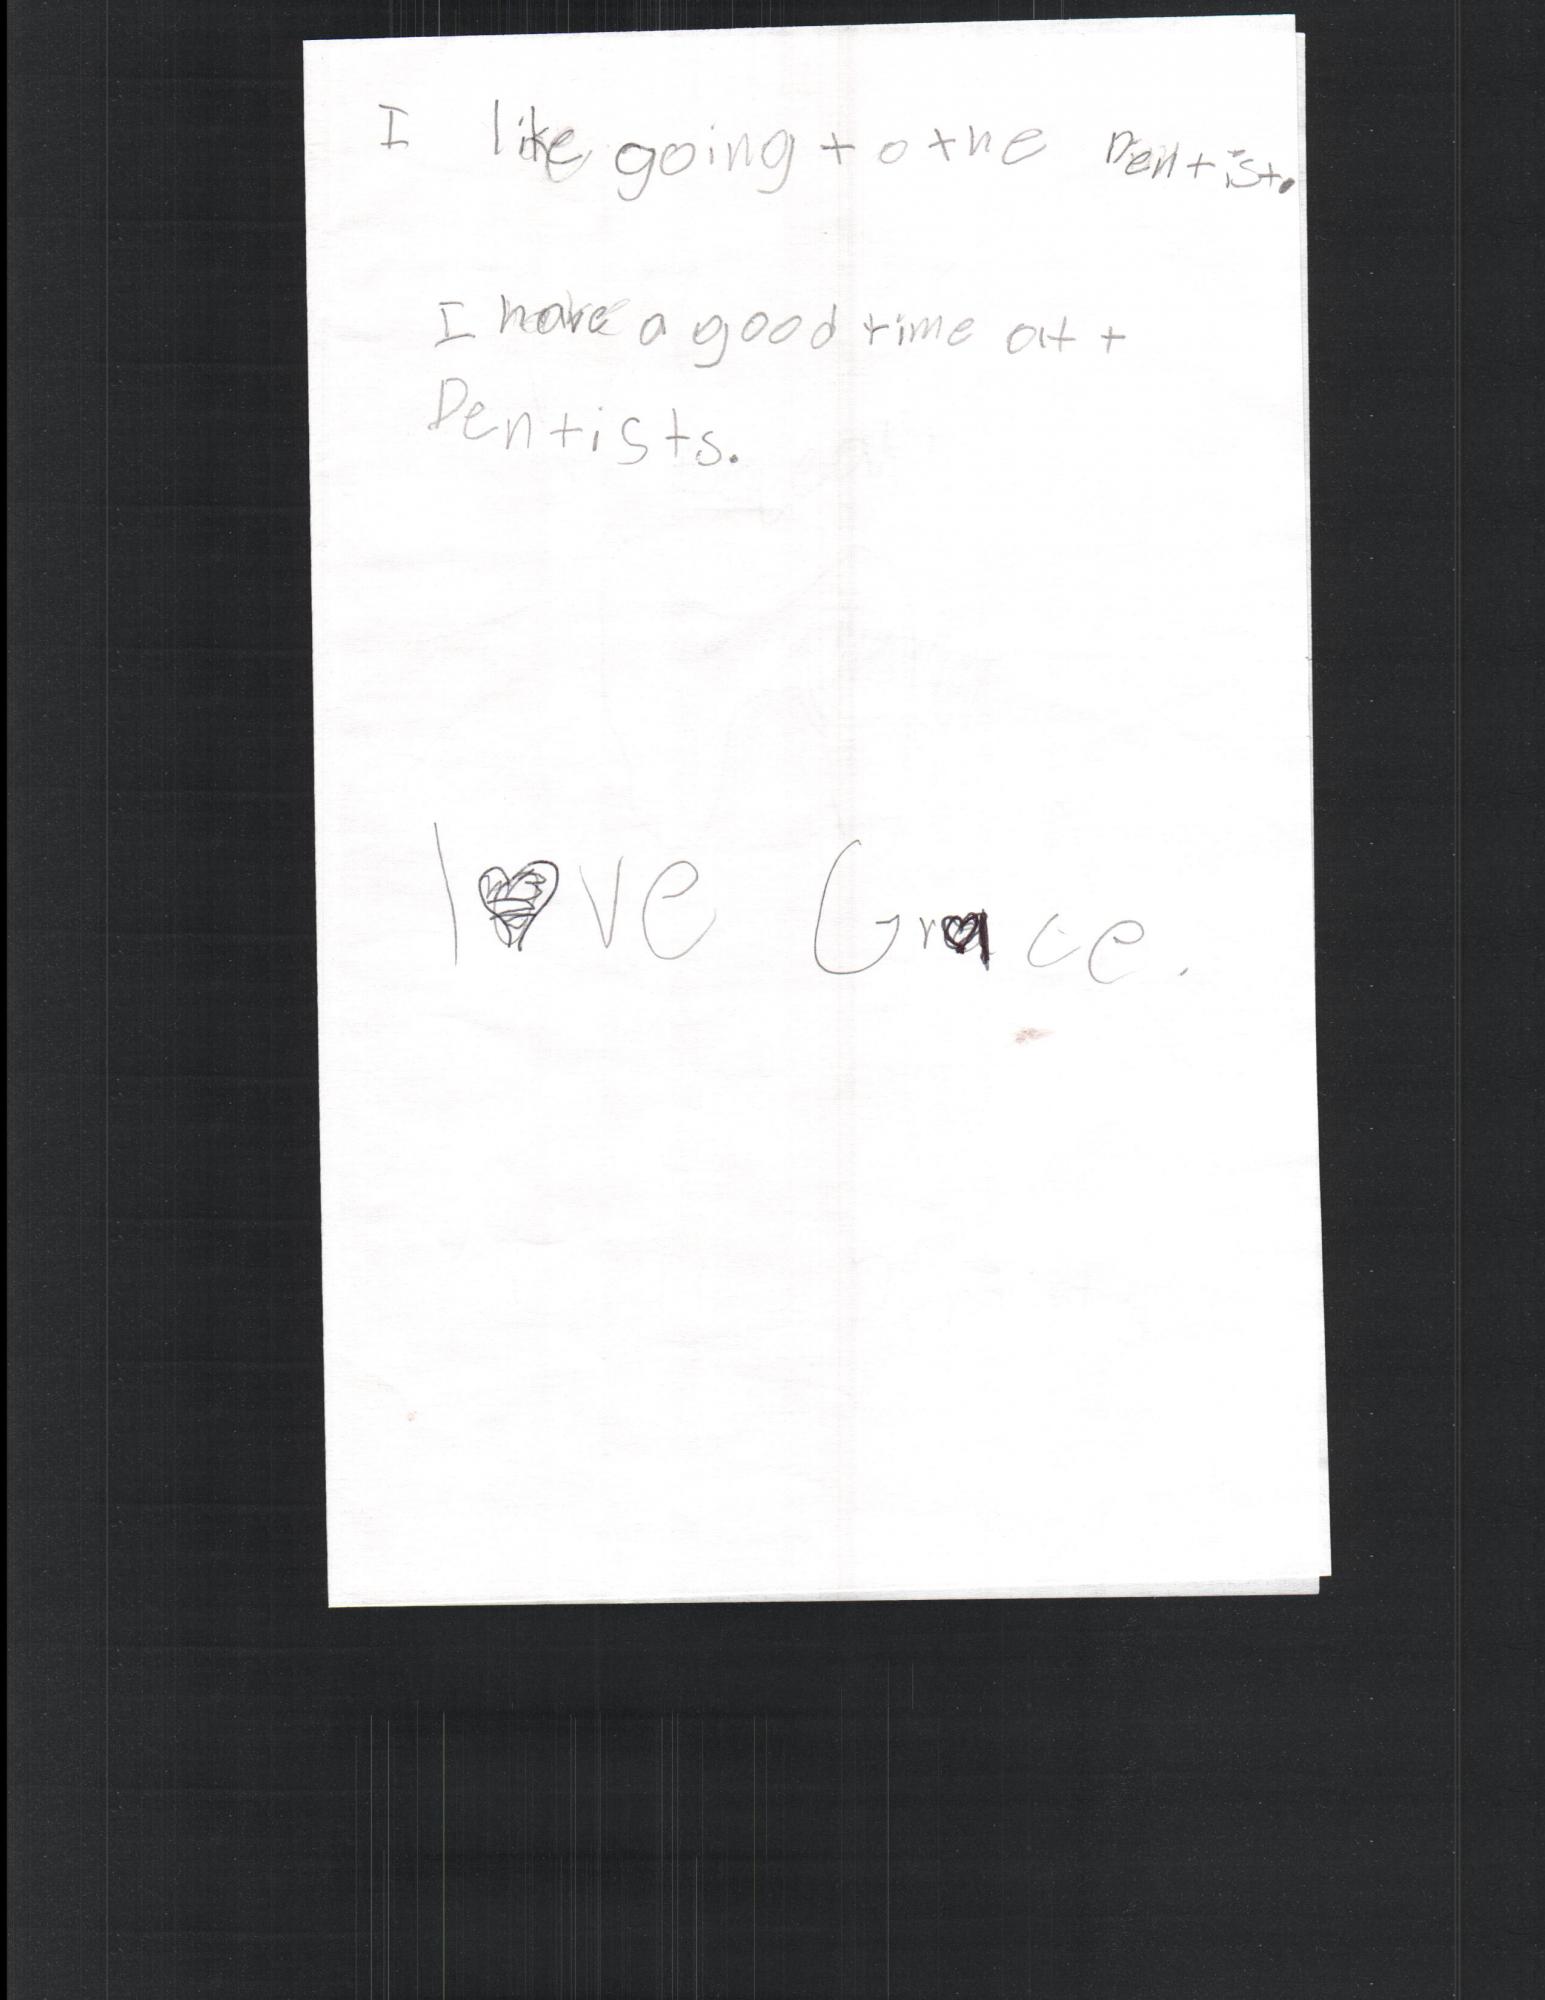 I like going to the Dentist.
I have a good time at t
Dentists.
love Grace.